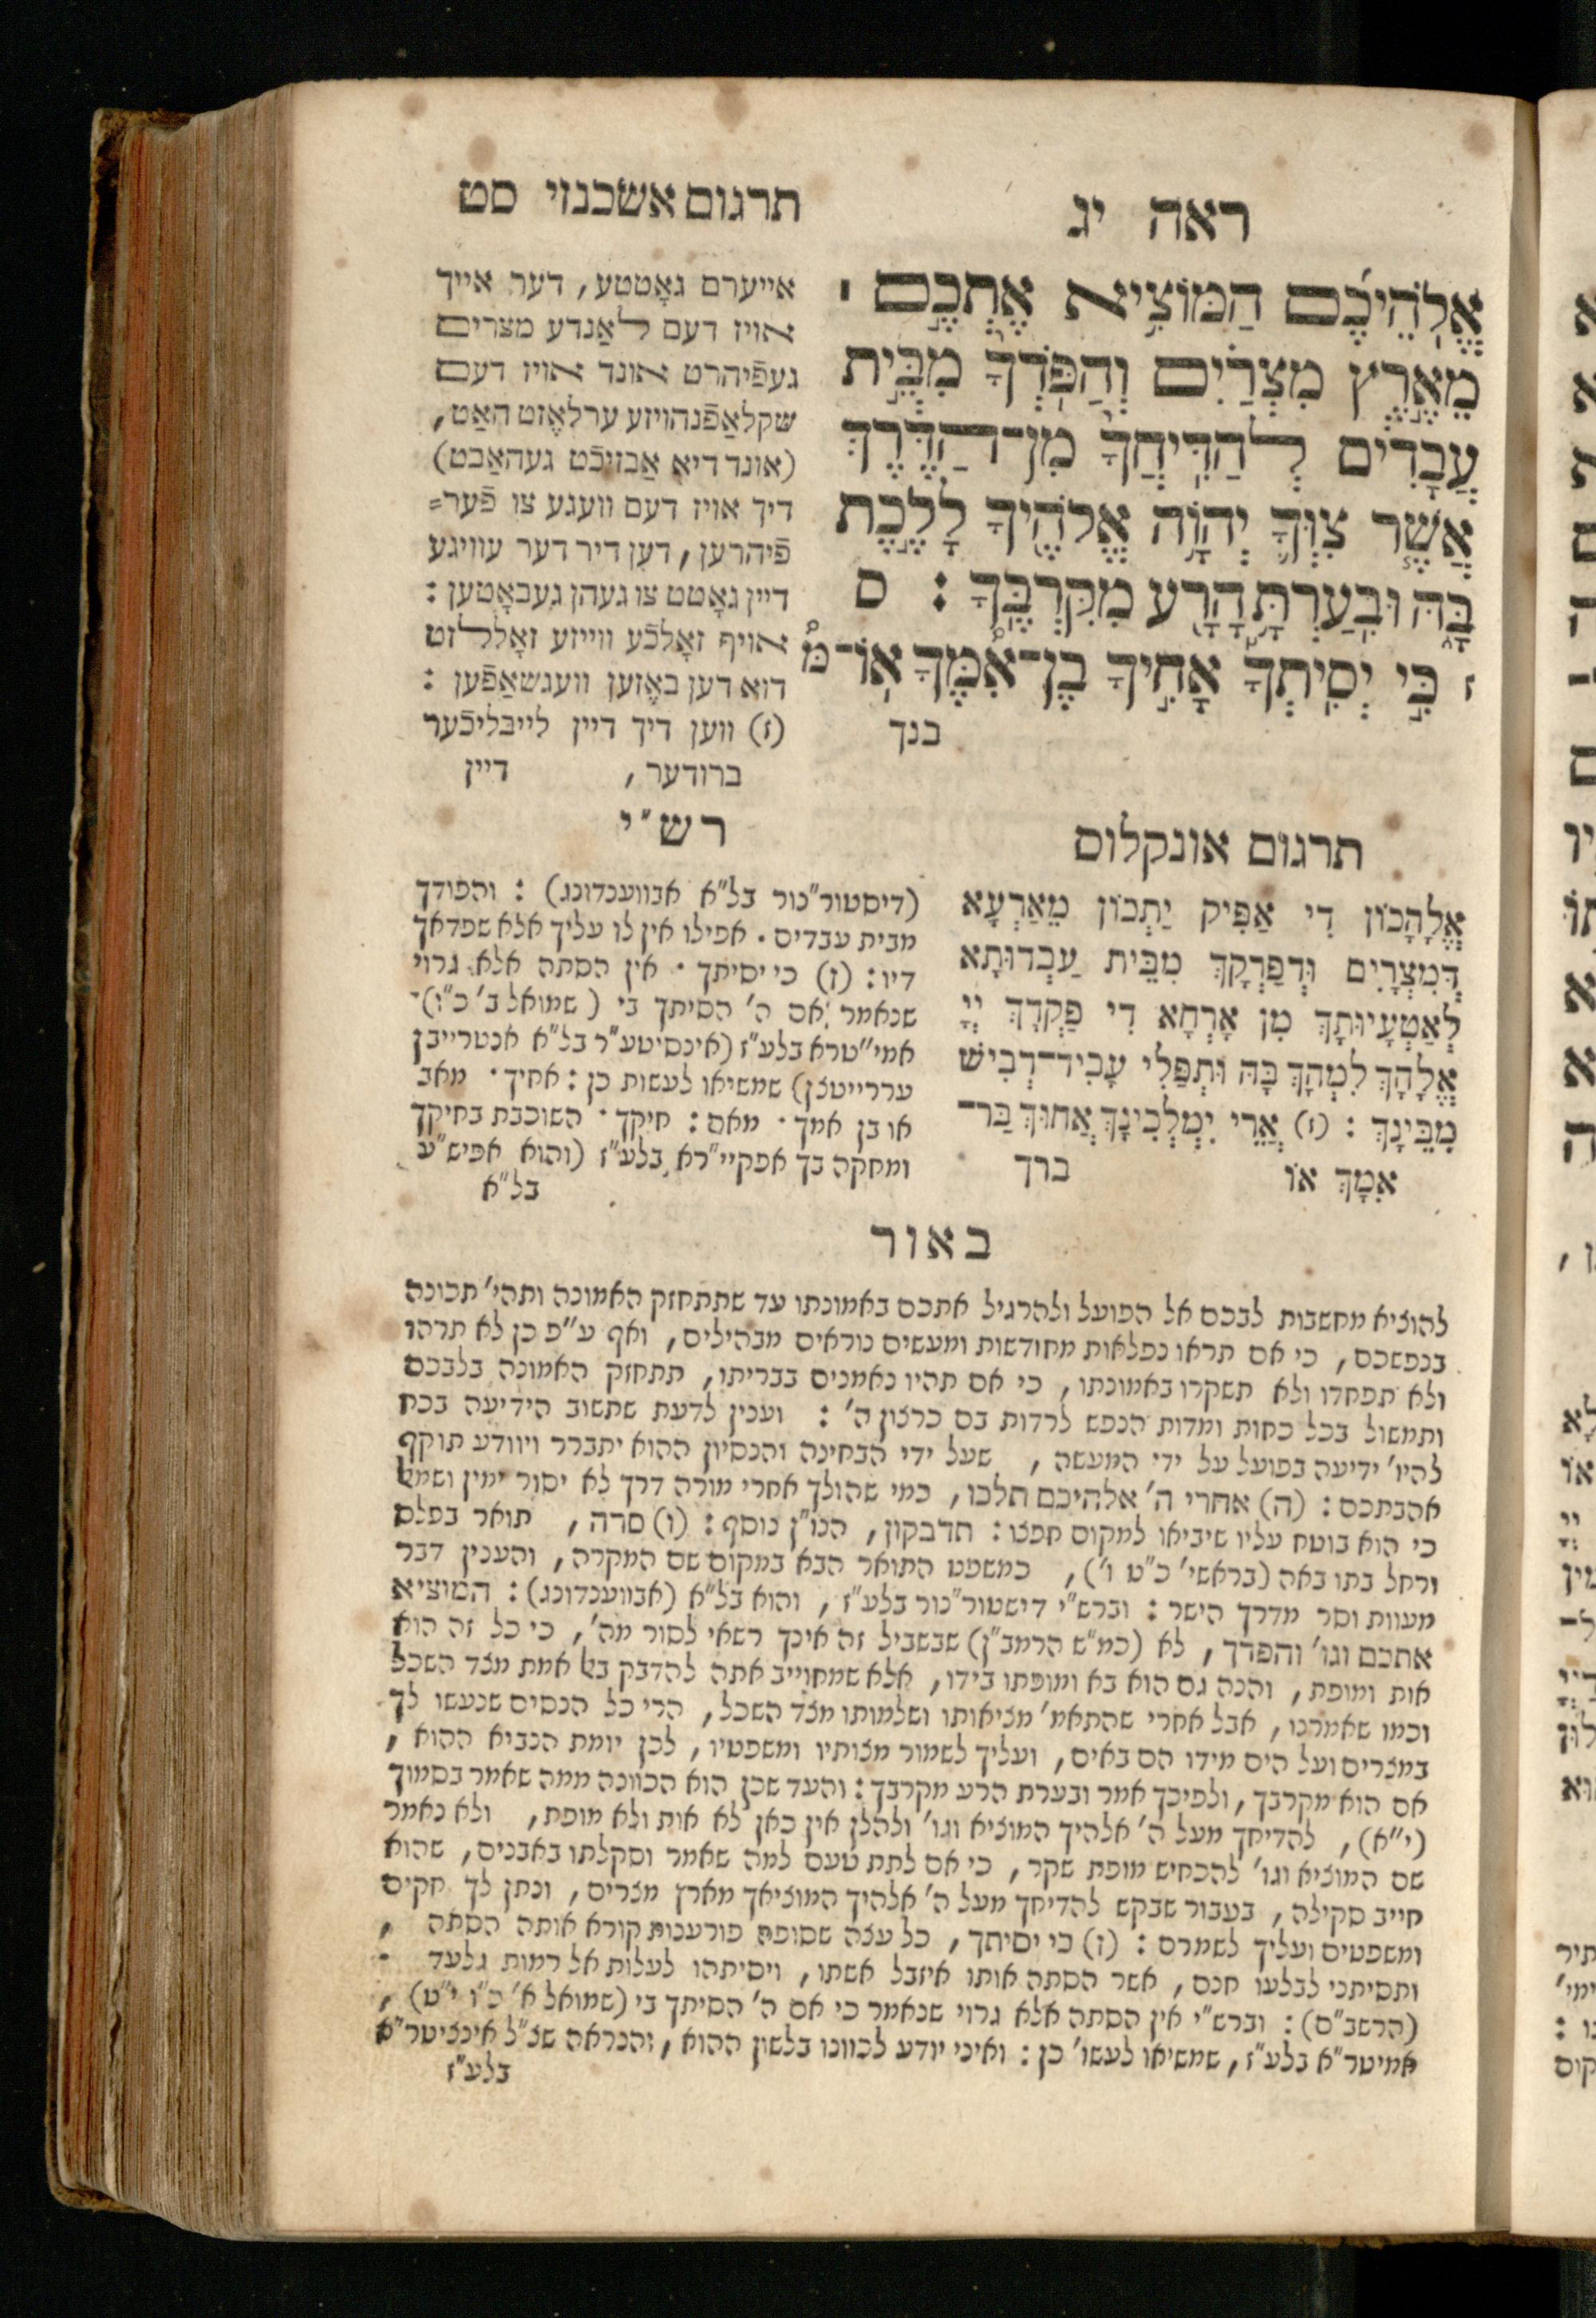 ראה יג
אֱלֹהֵיכֶ֜ם הַמּוֹצִ֥יא אֶתְכֶ֣ם ׀
מֵאֶ֣רֶץ מִצְרַ֗יִם וְהַפֹּֽדְךָ֙ מִבֵּ֣ית
עֲבָדִ֔ים לְהַדִּֽיחֲךָ֙ מִן־הַדֶּ֔רֶךְ
אֲשֶׁ֧ר צִוְּךָ֛ יְהוָ֥ה אֱלֹהֶ֖יךָ לָלֶ֣כֶת
בָּ֑הּ וּבִֽעַרְתָּ֥ הָרָ֖ע מִקִּרְבֶּֽךָ : ס
ז כִּ֣י יְסִֽיתְךָ֡ אָחִ֣יךָ בֶן־אִ֠מֶּךָ אֽוֹ־
בנך
תרגום אשכנזי סט
אייערם גאָטטע, דער אייך
אויז דעם לאַנדע מצרים
געפֿיהרט אונד אויז דעם
שקלאַפֿנהויזע ערלאֶזט האַט,
(אונד דיא אַבזיכֿט געהאַבט)
דיך אויז דעם וועגע צו פֿער=
פֿיהרען, דען דיר דער עוויגע
דיין גאָטט צו געהן געבאָטען :
אויף זאָלכֿע ווייזע זאָללזט
דוא דען באֶזען וועגשאַפֿען :
(ז) ווען דיך דיין לייבליכֿער
ברודער, דיין
תרגום אונקלוס
אֱלָהֲכוֹן דִי אַפִּיק יַתְכוֹן מֵאַרְעָא
דְּמִצְרַיִם וּדְפַרְקָךְ מִבֵּית עַבְדוּתָא
לְאַטְעָיוּתָךְ מִן אָרְחָא דִי פַקְדָךְ יְיָ
אֱלָהָךְ לִמְהָךְ בָּהּ וּתְפַלֵי עָבֵיד־דְבִישׁ
מִבֵּינָךְ : (ז) אֲרֵי יִמְלְכִינָךְ אֲחוּךְ בַּר־
אִמָךְ אוֹ ברך
רש״י
(דיסטור״נור בל״א אבווענדונג) : והפודך
מבית עבדים . אפילו אין לו עליך אלא שפדאך
דיו : (ז) כי יסיתך . אין הסתה אלא גרוי
שנאמר אם ה׳ הסיתך בי (שמואל ב׳ כ״ו)
אמי״טרא בלע״ז (אינסיטע״ר בל״א אנטרייבן
עררייטצן) שמשיאו לעשות כן : אחיך . מאב
או בן אמך . מאם : חיקך . השוכבת בחיקך
ומחקה בך אפקיי״רא בלע״ז (והוא אפיש״ע
בל״א
באור
להוציא מחשבות לבכם אל הפועל ולהרגיל אתכם באמונתו עד שתתחזק האמונה ותהי׳ תכונה
בנפשכם, כי אם תראו נפלאות מחודשות ומעשים נוראים מבהילים, ואף ע״פ כן לא תרהו
ולא תפחדו ולא תשקרו באמונתו, כי אם תהיו נאמנים בבריתו, תתחזק האמונה בלבכם
ותמשול בכל כחות ומדות הנפש לרדות בם כרצון ה׳ : וענין לדעת שתשוב הידיעה בכח
להיו׳ ידיעה בפועל על ידי המעשה, שעל ידי הבחינה והנסיון ההוא יתברר ויוודע תוקף
אהבתכם : (ה) אחרי ה׳ אלהיכם תלכו, כמי שהולך אחרי מורה דרך לא יסור ימין ושמאל
כי הוא בוטח עליו שיביאו למקום חפצו : תדבקון, הנו״ן נוסף : (ו) סרה, תואר בפלס
ורחל בתו באה (בראשי׳ כ״ט ו׳), כמשפט התואר הבא במקום שם המקרה, והענין דבר
מעוות וסר מדרך הישר : וברש״י דישטור״נור בלע״ז, והוא בל״א (אבווענדונג) : המוציא
אתכם וגו׳ והפדך, לא (כמ״ש הרמב״ן) שבשביל זה אינך רשאי לסור מה׳, כי כל זה הוא
אות ומופת, והנה גם הוא בא ומופתו בידו, אלא שמחוייב אתה להדבק באל אמת מצד השכל
וכמו שאמרנו, אבל אחרי שהתאמ׳ מציאותו ושלמותו מצד השכל, הרי כל הנסים שנעשו לך
במצרים ועל הים מידו הם באים, ועליך לשמור מצותיו ומשפטיו, לכן יומת הנביא ההוא,
אם הוא מקרבך, ולפיכך אמר ובערת הרע מקרבך : והעד שכן הוא הכוונה ממה שאמר בסמוך
(י״א), להדיחך מעל ה׳ אלהיך המוציא וגו׳ ולהלן אין כאן לא אות ולא מופת, ולא נאמר
שם המוציא וגו׳ להכחיש מופת שקר, כי אם לתת טעם למה שאמר וסקלתו באבנים, שהוא
חייב סקילה, בעבור שבקש להדיחך מעל ה׳ אלהיך המוציאך מארץ מצרים, ונתן לך חקים
ומשפטים ועליך לשמרם : (ז) כי יסיתך, כל עצה שסופה פורענות קורא אותה הסתה,
ותסיתני לבלעו חנם, אשר הסתה אותו איזבל אשתו, ויסיתהו לעלות אל רמות גלעד .
(הרשב״ם) : וברש״י אין הסתה אלא גרוי שנאמר כי אם ה׳ הסיתך בי (שמואל א׳ כ״ו י״ט),
אמיטר״א בלע״ז, שמשיאו לעשו׳ כן : ואיני יודע לכוונו בלשון ההוא, והנראה שצ״ל אינציטר״א
בלע״ז